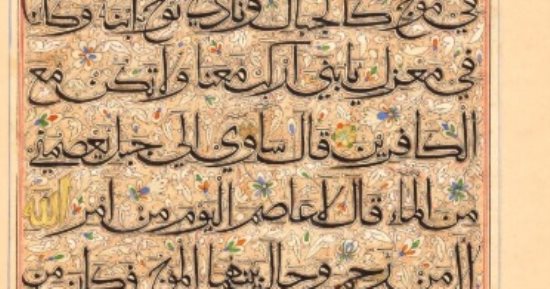 في موج كالجبال ونادى نوح ابنه وكان
في معزل يابني اركب معنا ولا تكن مع
الكافرين قال ساوي الى جبل يعصمني
من الماء قال لا عاصم اليوم من امر الله
الا من رحم وحال بينهما الموج فكان من